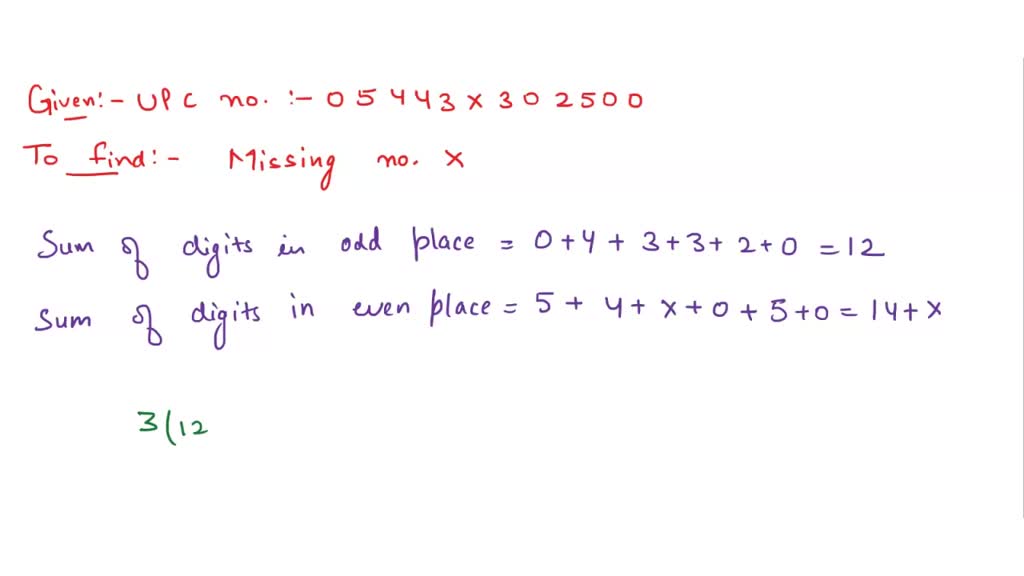 Given:- UPC no. :- 0 5 4 4 3 x 3 0 2 5 0 0
To find:- Missing no. x
Sum of digits in odd place = 0 + 4 + 3 + 3 + 2 + 0 = 12
Sum of digits in even place = 5 + 4 + x + 0 + 5 + 0 = 14 + x
3(12